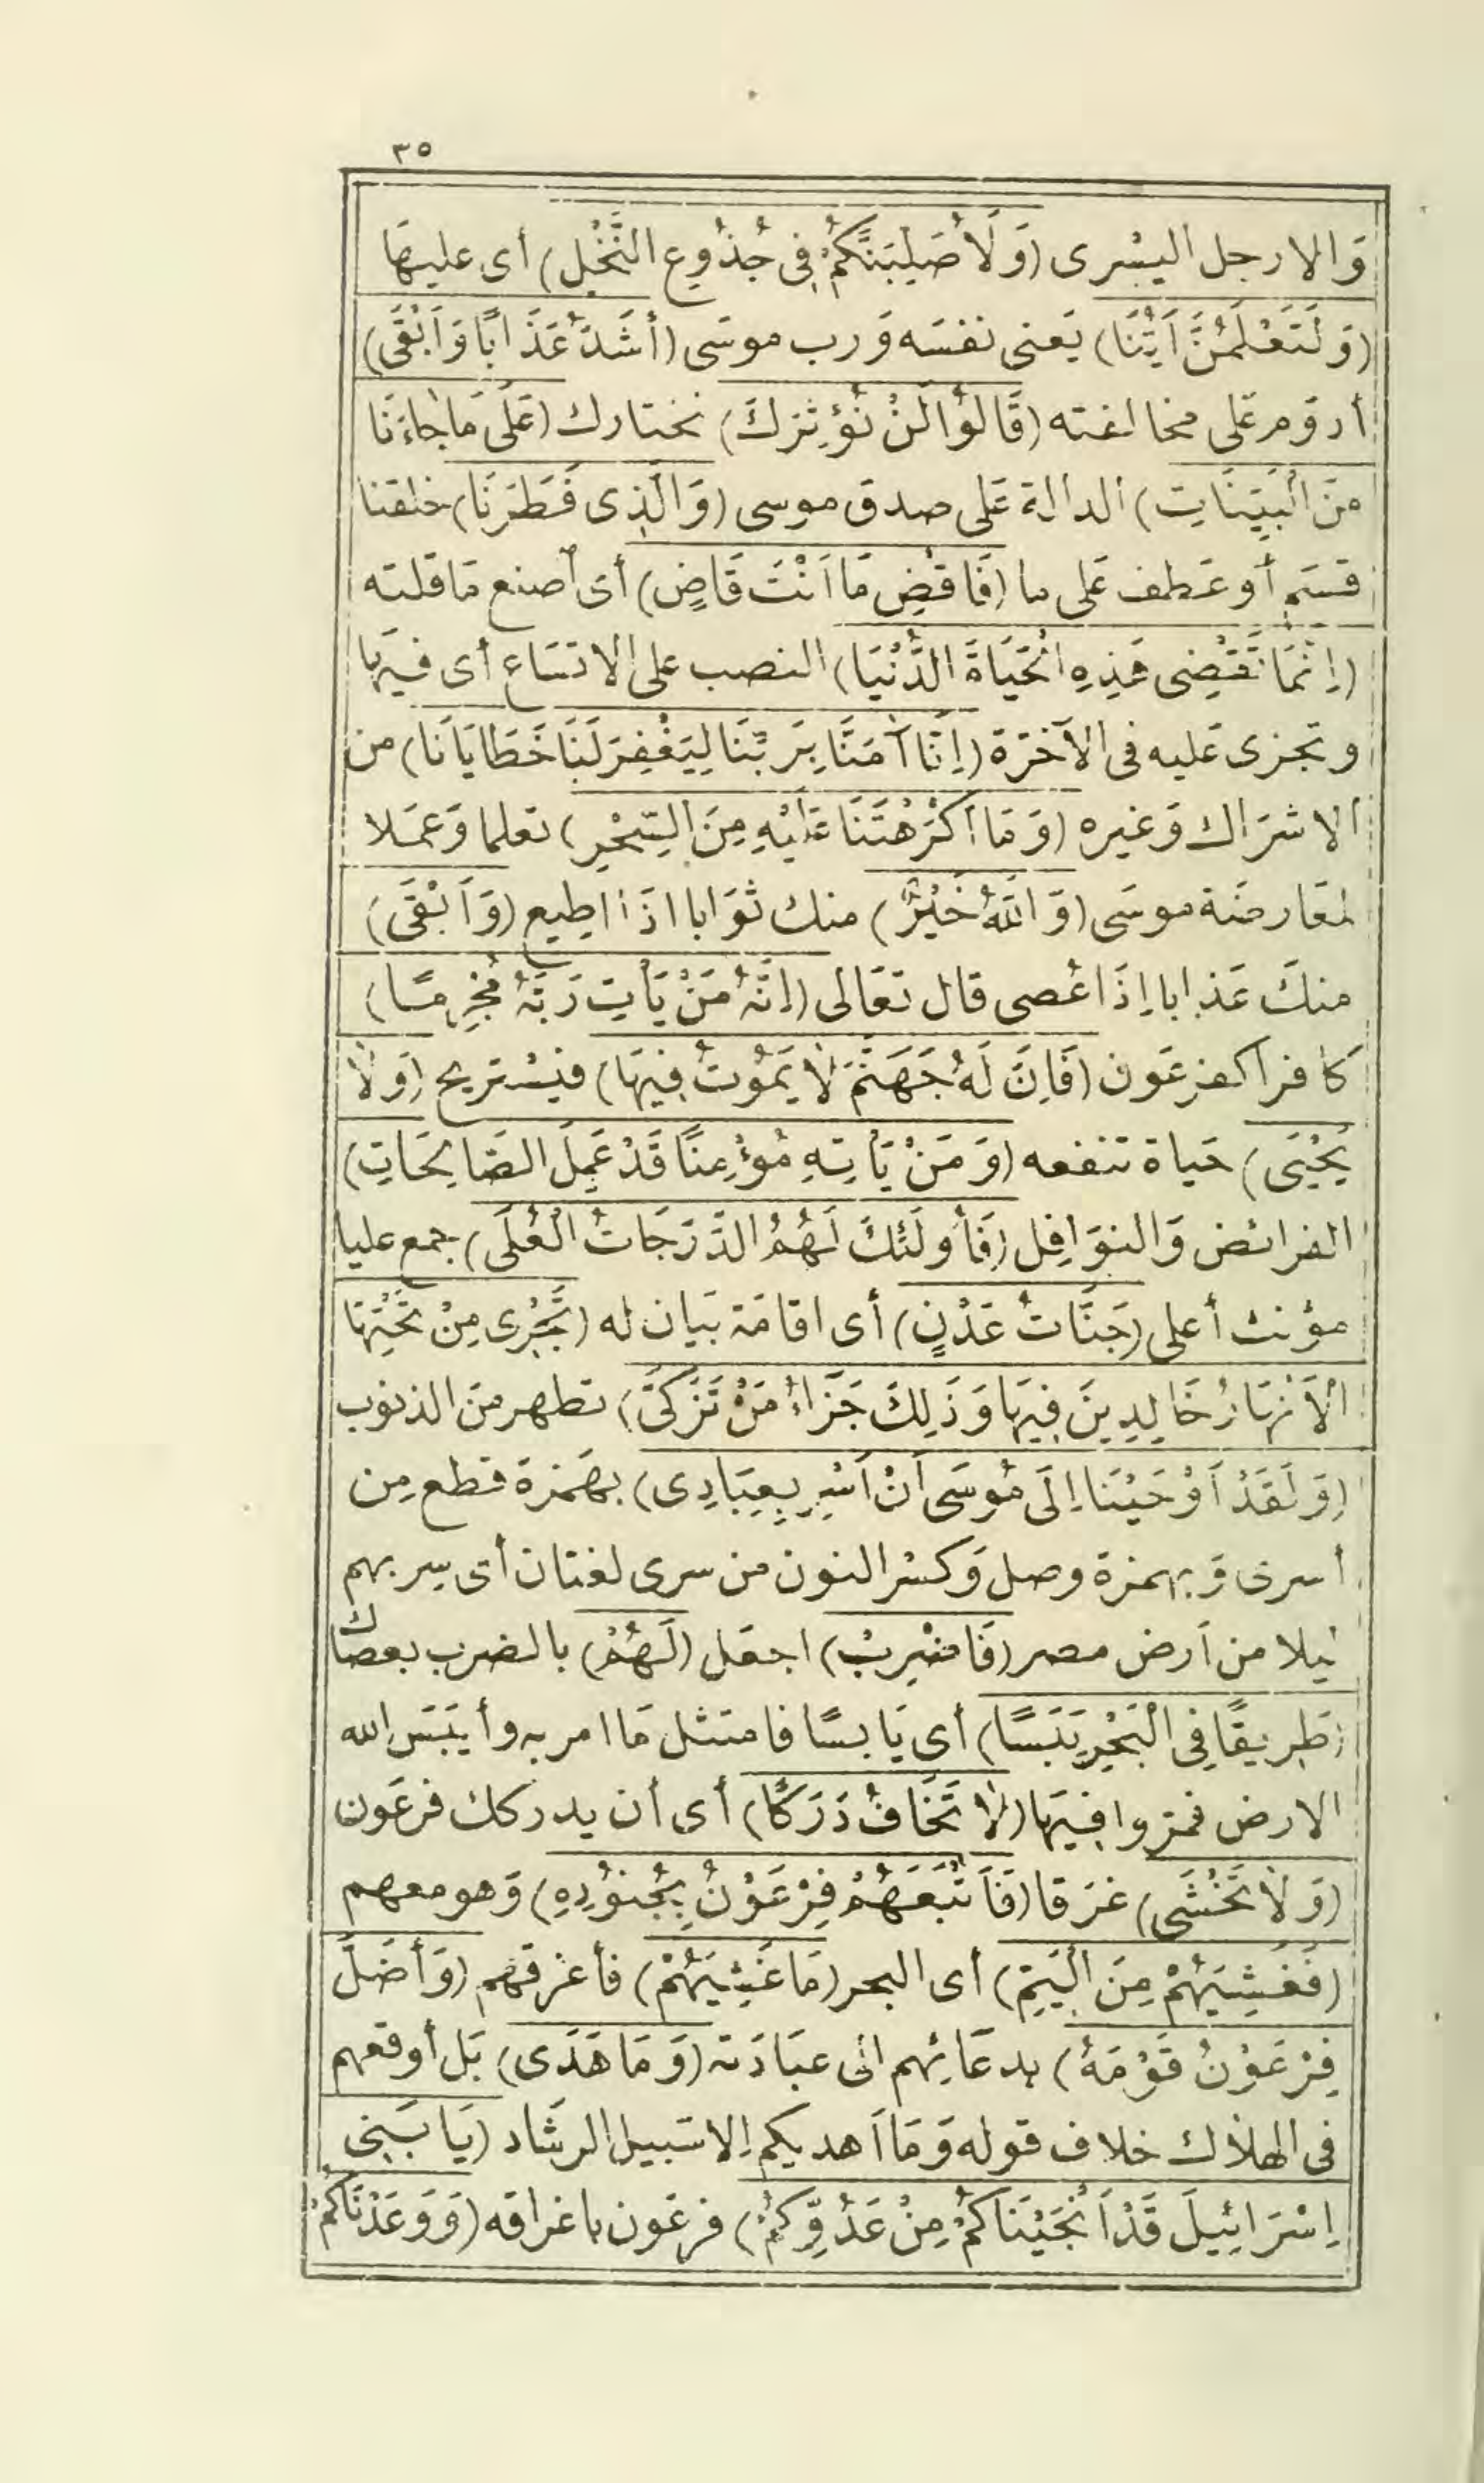 ٣٥
وَالارجل اليسْرى (وَلَأُصَلِّبَنَّكُمْ فِى جُذُوعِ النَّخْلِ) أى عليهَا
(وَلَتَعْلَمُنَّ اَيُّنَا) يَعنى نفسَه وَرب موسَى (أَشَدُّ عَذَابًا وَاَبْقَى)
أدوَم عَلى مخالفته (قَالُوا لَنْ نُؤْثِرَكَ) نختارك (عَلَى مَا جَاءَنَا
مِنَ الْبَيِّنَاتِ) الدالة عَلى صدق موسى (وَالَّذِى فَطَرَنَا) خلقنا
قسَم أو عَطف عَلى ما (فَاقْضِ مَا اَنْتَ قَاضٍ) أى اصنع مَا قلته
(اِنَّمَا تَقْضِى هَذِهِ الْحَيَاةَ الدُّنْيَا) النصب على الاتسَاع أى فيهَا
وتجزى عَليه فى الآخرَة (اِنَّا آمَنَّا بِرَبِّنَا لِيَغْفِرَ لَنَا خَطَايَانَا) من
الاشرَاك وَغيره (وَمَا اَكْرَهْتَنَا عَلَيْهِ مِنَ السِّحْرِ) تعلما وَعمَلا
لمعَارضَة موسَى (وَاللَّهُ خَيْرٌ) منك ثوَابا اذَا اطيع (وَاَبْقَى)
منكَ عَذابا اِذَا عُصى قال تعَالى (اِنَّهُ مَنْ يَأْتِ رَبَّهُ مُجْرِمًا)
كافرا كفرعَون (فَاِنَّ لَهُ جَهَنَّمَ لَا يَمُوتُ فِيهَا) فيسْتريح (وَلَا
يَحْيَى) حَياة تنفعه (وَمَنْ يَأْتِهِ مُؤْمِنًا قَدْ عَمِلَ الصَّالِحَاتِ)
الفرائض وَالنوَافِل (فَأُولَئِكَ لَهُمُ الدَّرَجَاتُ الْعُلَى) جمع عليا
مؤنث أعلى (جَنَّاتُ عَدْنٍ) أى اقامَة بَيان له (تَجْرِى مِنْ تَحْتِهَا
الْأَنْهَارُ خَالِدِينَ فِيهَا وَذَلِكَ جَزَاءُ مَنْ تَزَكَّى) تطهر منَ الذنوب
(وَلَقَدْ اَوْحَيْنَا اِلَى مُوسَى اَنْ اَسْرِ بِعِبَادِى) بهَمزة قطع مِن
أسرى وَبهمزة وصل وَكسْر النون من سرى لغتان أى سر بهم
ليلا من اَرض مصر (فَاضْرِبْ) اجعَل (لَهُمْ) بالضرب بعصَاك
(طَرِيقًا فِى الْبَحْرِ يَبَسًا) أى يَابسًا فامتثل مَا امر به وأيبَسَ الله
الارض فمروا فيهَا (لَا تَخَافُ دَرَكًا) أى أن يدركك فرعَون
(وَلَا تَخْشَى) غرَقا (فَأَتْبَعَهُمْ فِرْعَوْنُ بِجُنُودِهِ) وَهو معهم
(فَغَشِيَهُمْ مِنَ الْيَمِّ) أى البحر (مَا غَشِيَهُمْ) فأغرقهم (وَأَضَلَّ
فِرْعَوْنُ قَوْمَهُ) بدعَائهم الى عبَادَته (وَمَا هَدَى) بَل أوقعهم
فى الهلاك خلاف قوله وَمَا اَهديكم اِلا سَبيل الرشَاد (يَا بَنِى
اِسْرَائِيلَ قَدْ اَنْجَيْنَاكُمْ مِنْ عَدُوِّكُمْ) فرعَون باغراقه (وَوَعَدْنَاكُمْ